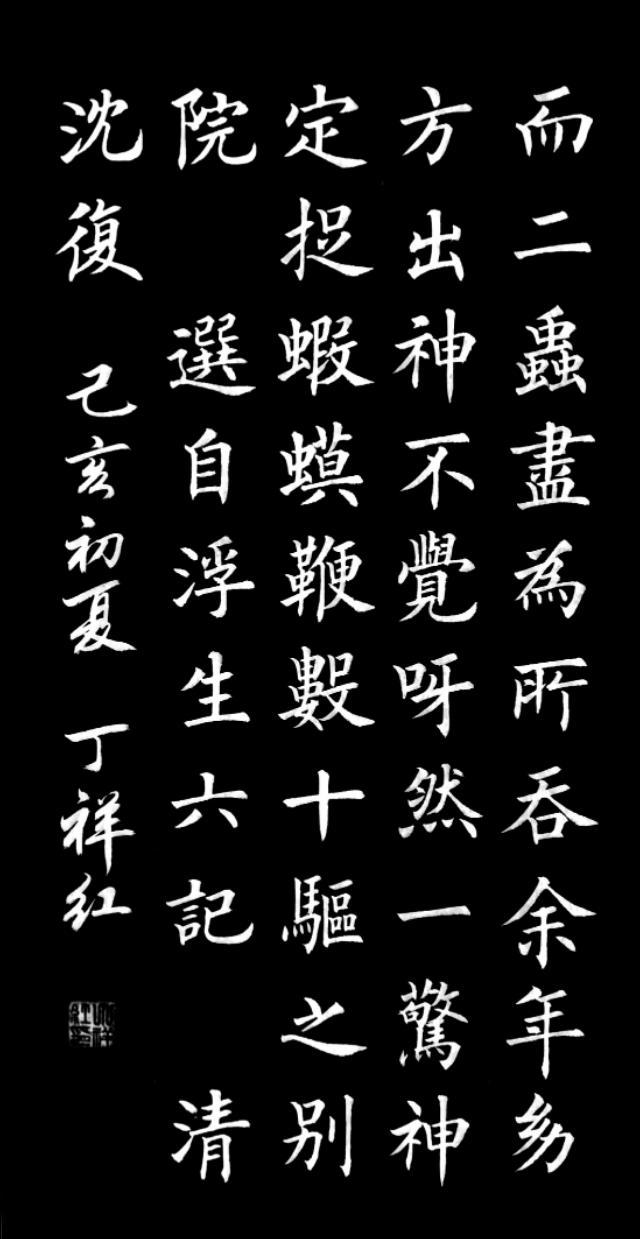 而二蟲盡為所吞余年幼
方出神不覺呀然一驚神
定捉蝦蟆鞭數十驅之別
院 選自浮生六記 清
沈復 己亥初夏 丁祥红